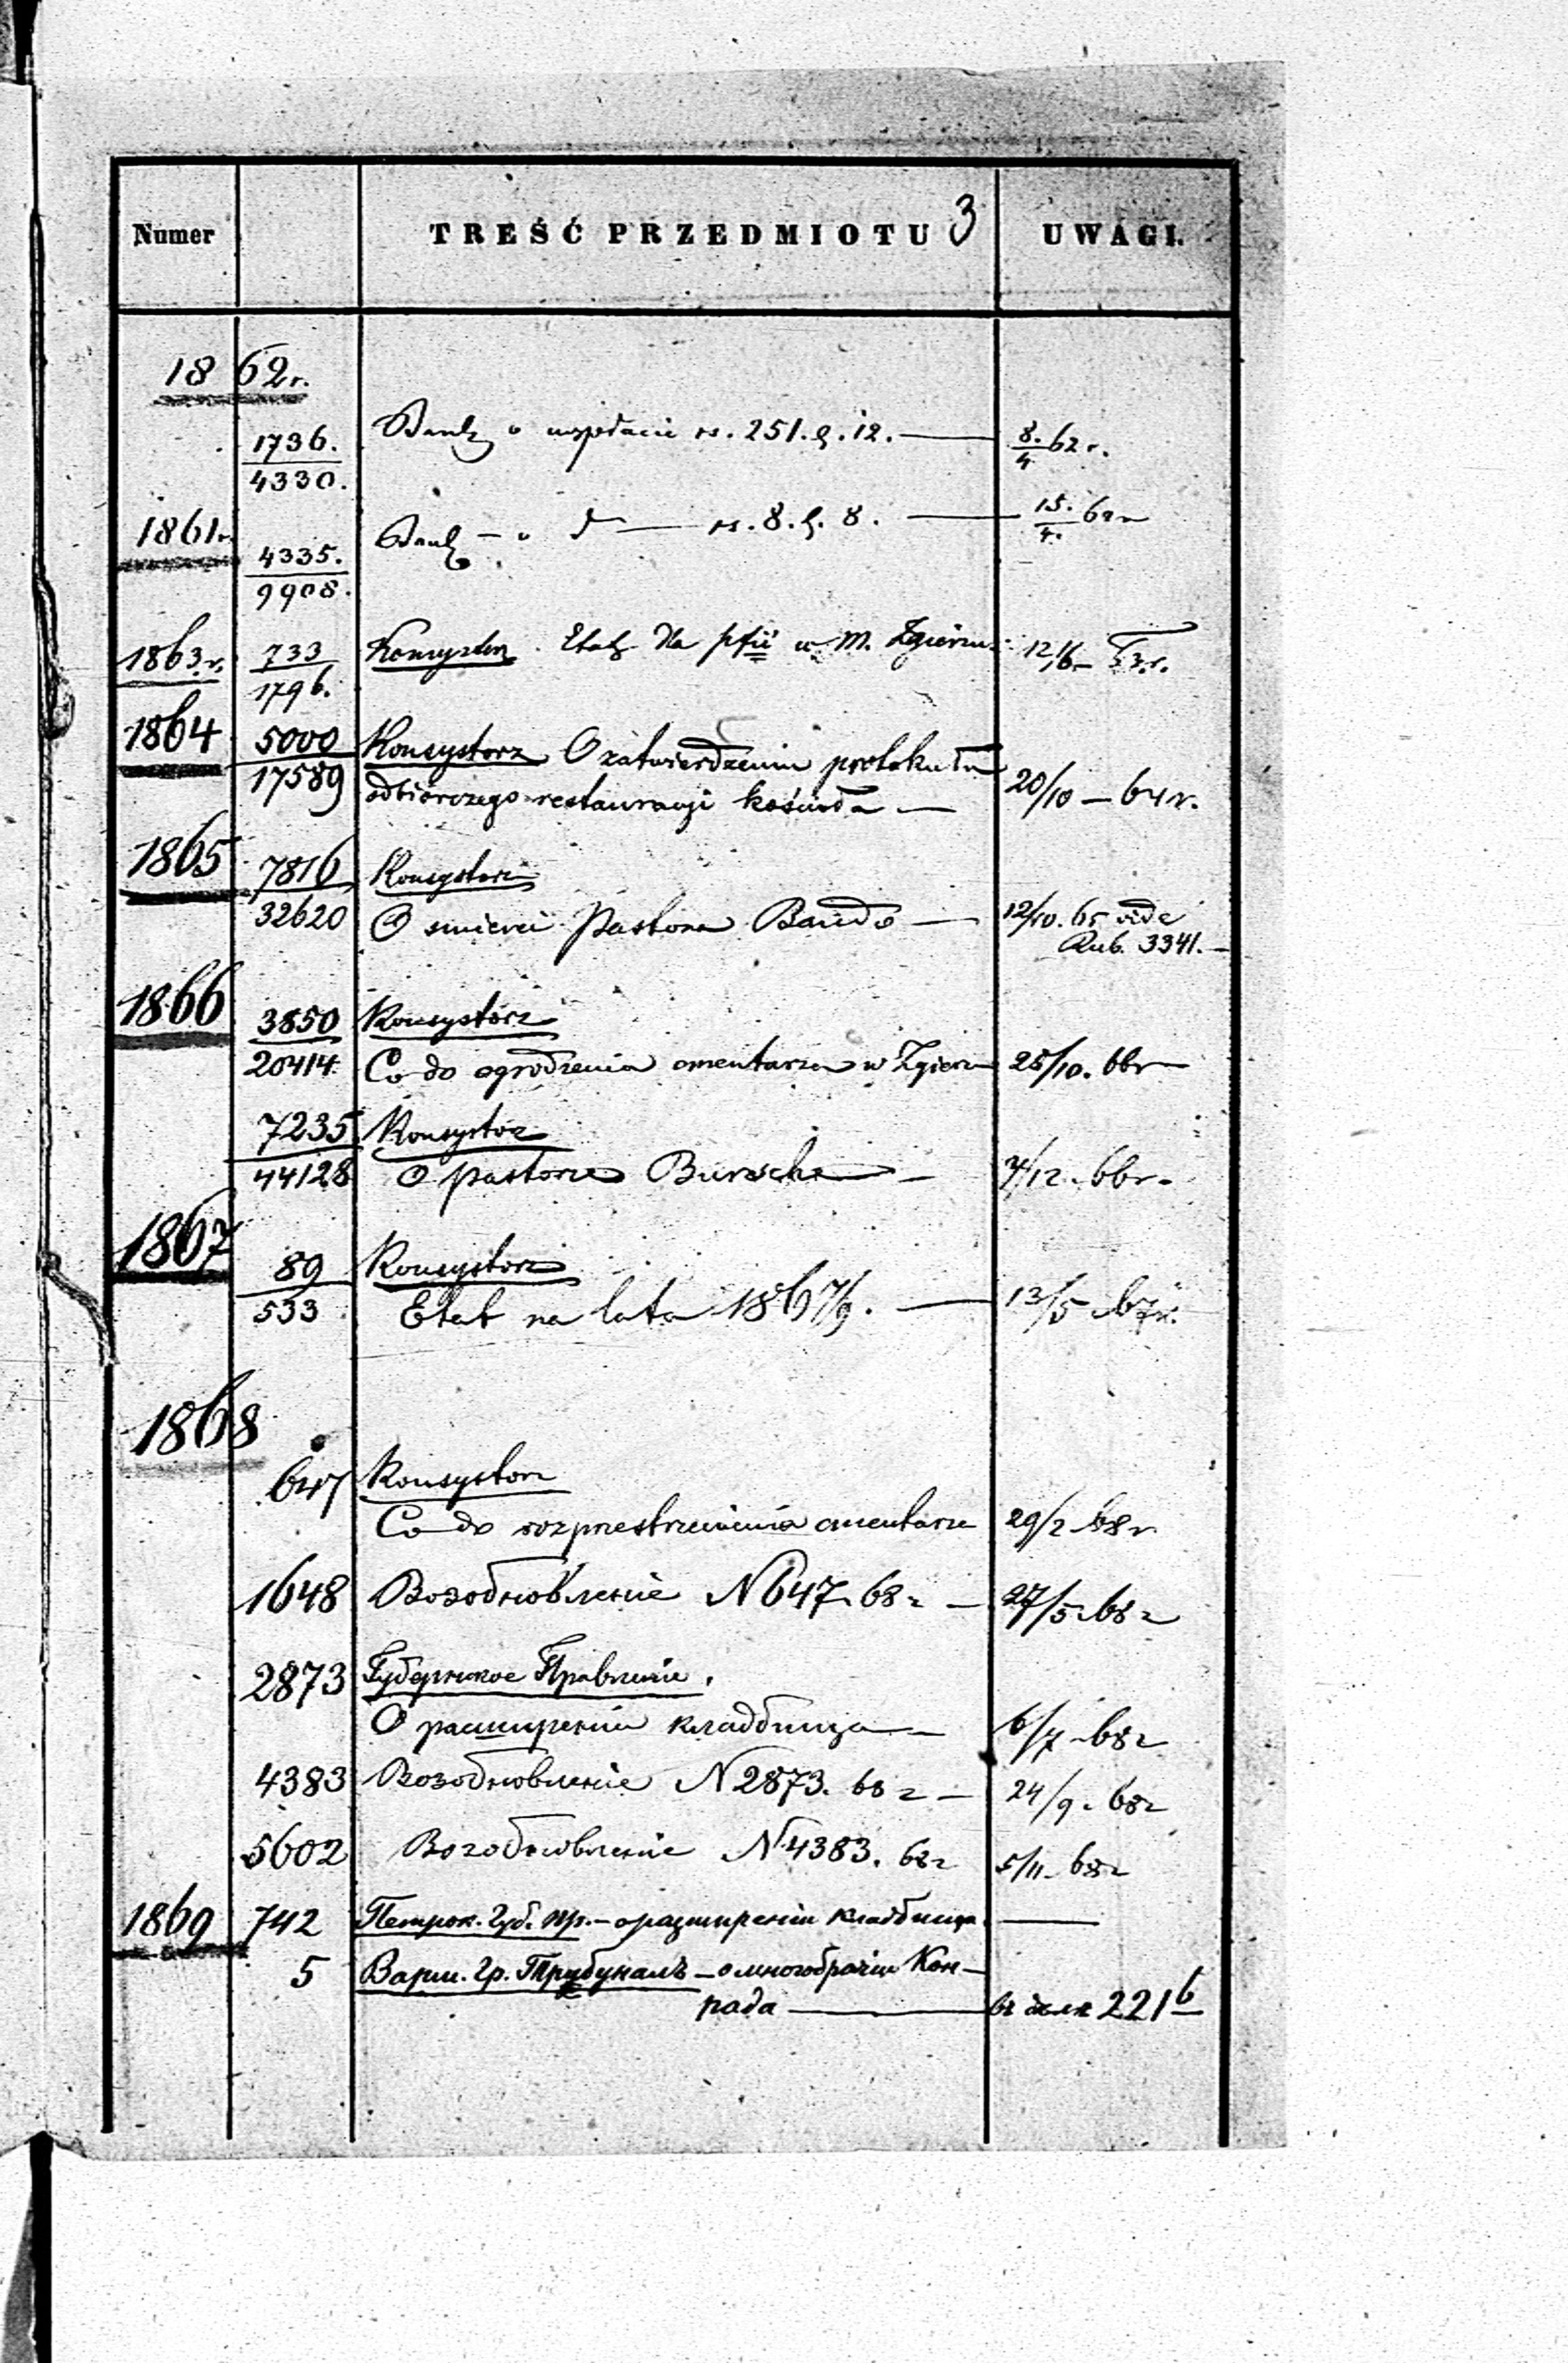 3
Numer TREŚĆ PRZEDMIOTU UWAGI.
1862r.
1736. Bank o wypłacie rs. 251. k. 12. — 8/4 62 r.
4330.
1861r.
4335. Bank — o d° — rs. 8. k. 8. — 15./4. 62r
9908.
1863r. 733 Konsystorz. Etat dla pfii w M. Zgierzu 12/6
1796.
1864 5000 Konsystorz O zatwierdzeniu protokułu
17589 odbiorczego restauracyi kościoła — 20/10 — 64 r.
1865 7816 Konsystorz
32620 O śmierci Pastora — 12/10. 65 vide
Rub. 3341. —
1866 3850 Konsystorz
20414 Co do ogrodzenia cmentarza w Zgierzu 25/10. 66r
7235 Konsystorz
44128 O pastorze Bursche — /12. 66r.
1867 89 Konsystorz
533 Etat na lata 1867/9. — 13/5 67r.
1868
647 Konsystorz
Co do rozprzestrzenienia cmentarza 29/2 68r
1648 Возобновленіе N 647. 68 г — 27/5 68 г
2873 Губернское Правленіе.
О расширеніи кладбища — 6/7 68г
4383 Возобновленіе N 2873. 68 г — 24/9. 68г
5602 Возобновленіе N 4383. 68г 5/11. 68г
1869 742 Петрок. Губ. пр. — о разширеніи кладбища. —
5 Варш. Гр. Трибуналъ — о многобрачіи Кон-
рада — въ 221 6